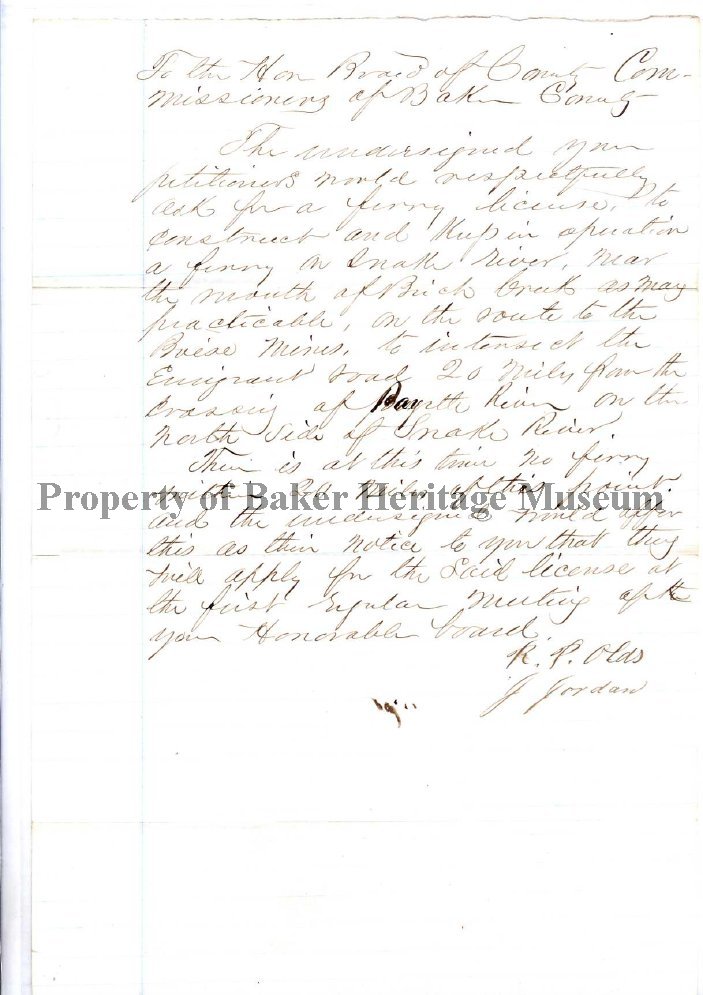 To the Hon Braid of County Com-
missioners of Baker County
The undersigned your
petitioners would respectfully
ask for a ferry license, to
construct and keep in opuation
a ferry on Snake River, near
the mouth of Birch Creek as may
practicable, on the route to the
Boise Mines, to intersect the
Emigrant road 20 miles from the
crossing of Payette River on the
North Side of Snake River.
Their is at this time no ferry
within 20 miles of this point
Property of Baker Heritage Museum
and the undersigned would offer
this as their notice to you that they
will apply for the said license at
the first regular meeting of
your Honorable board.
R. P. Olds
J Jordan